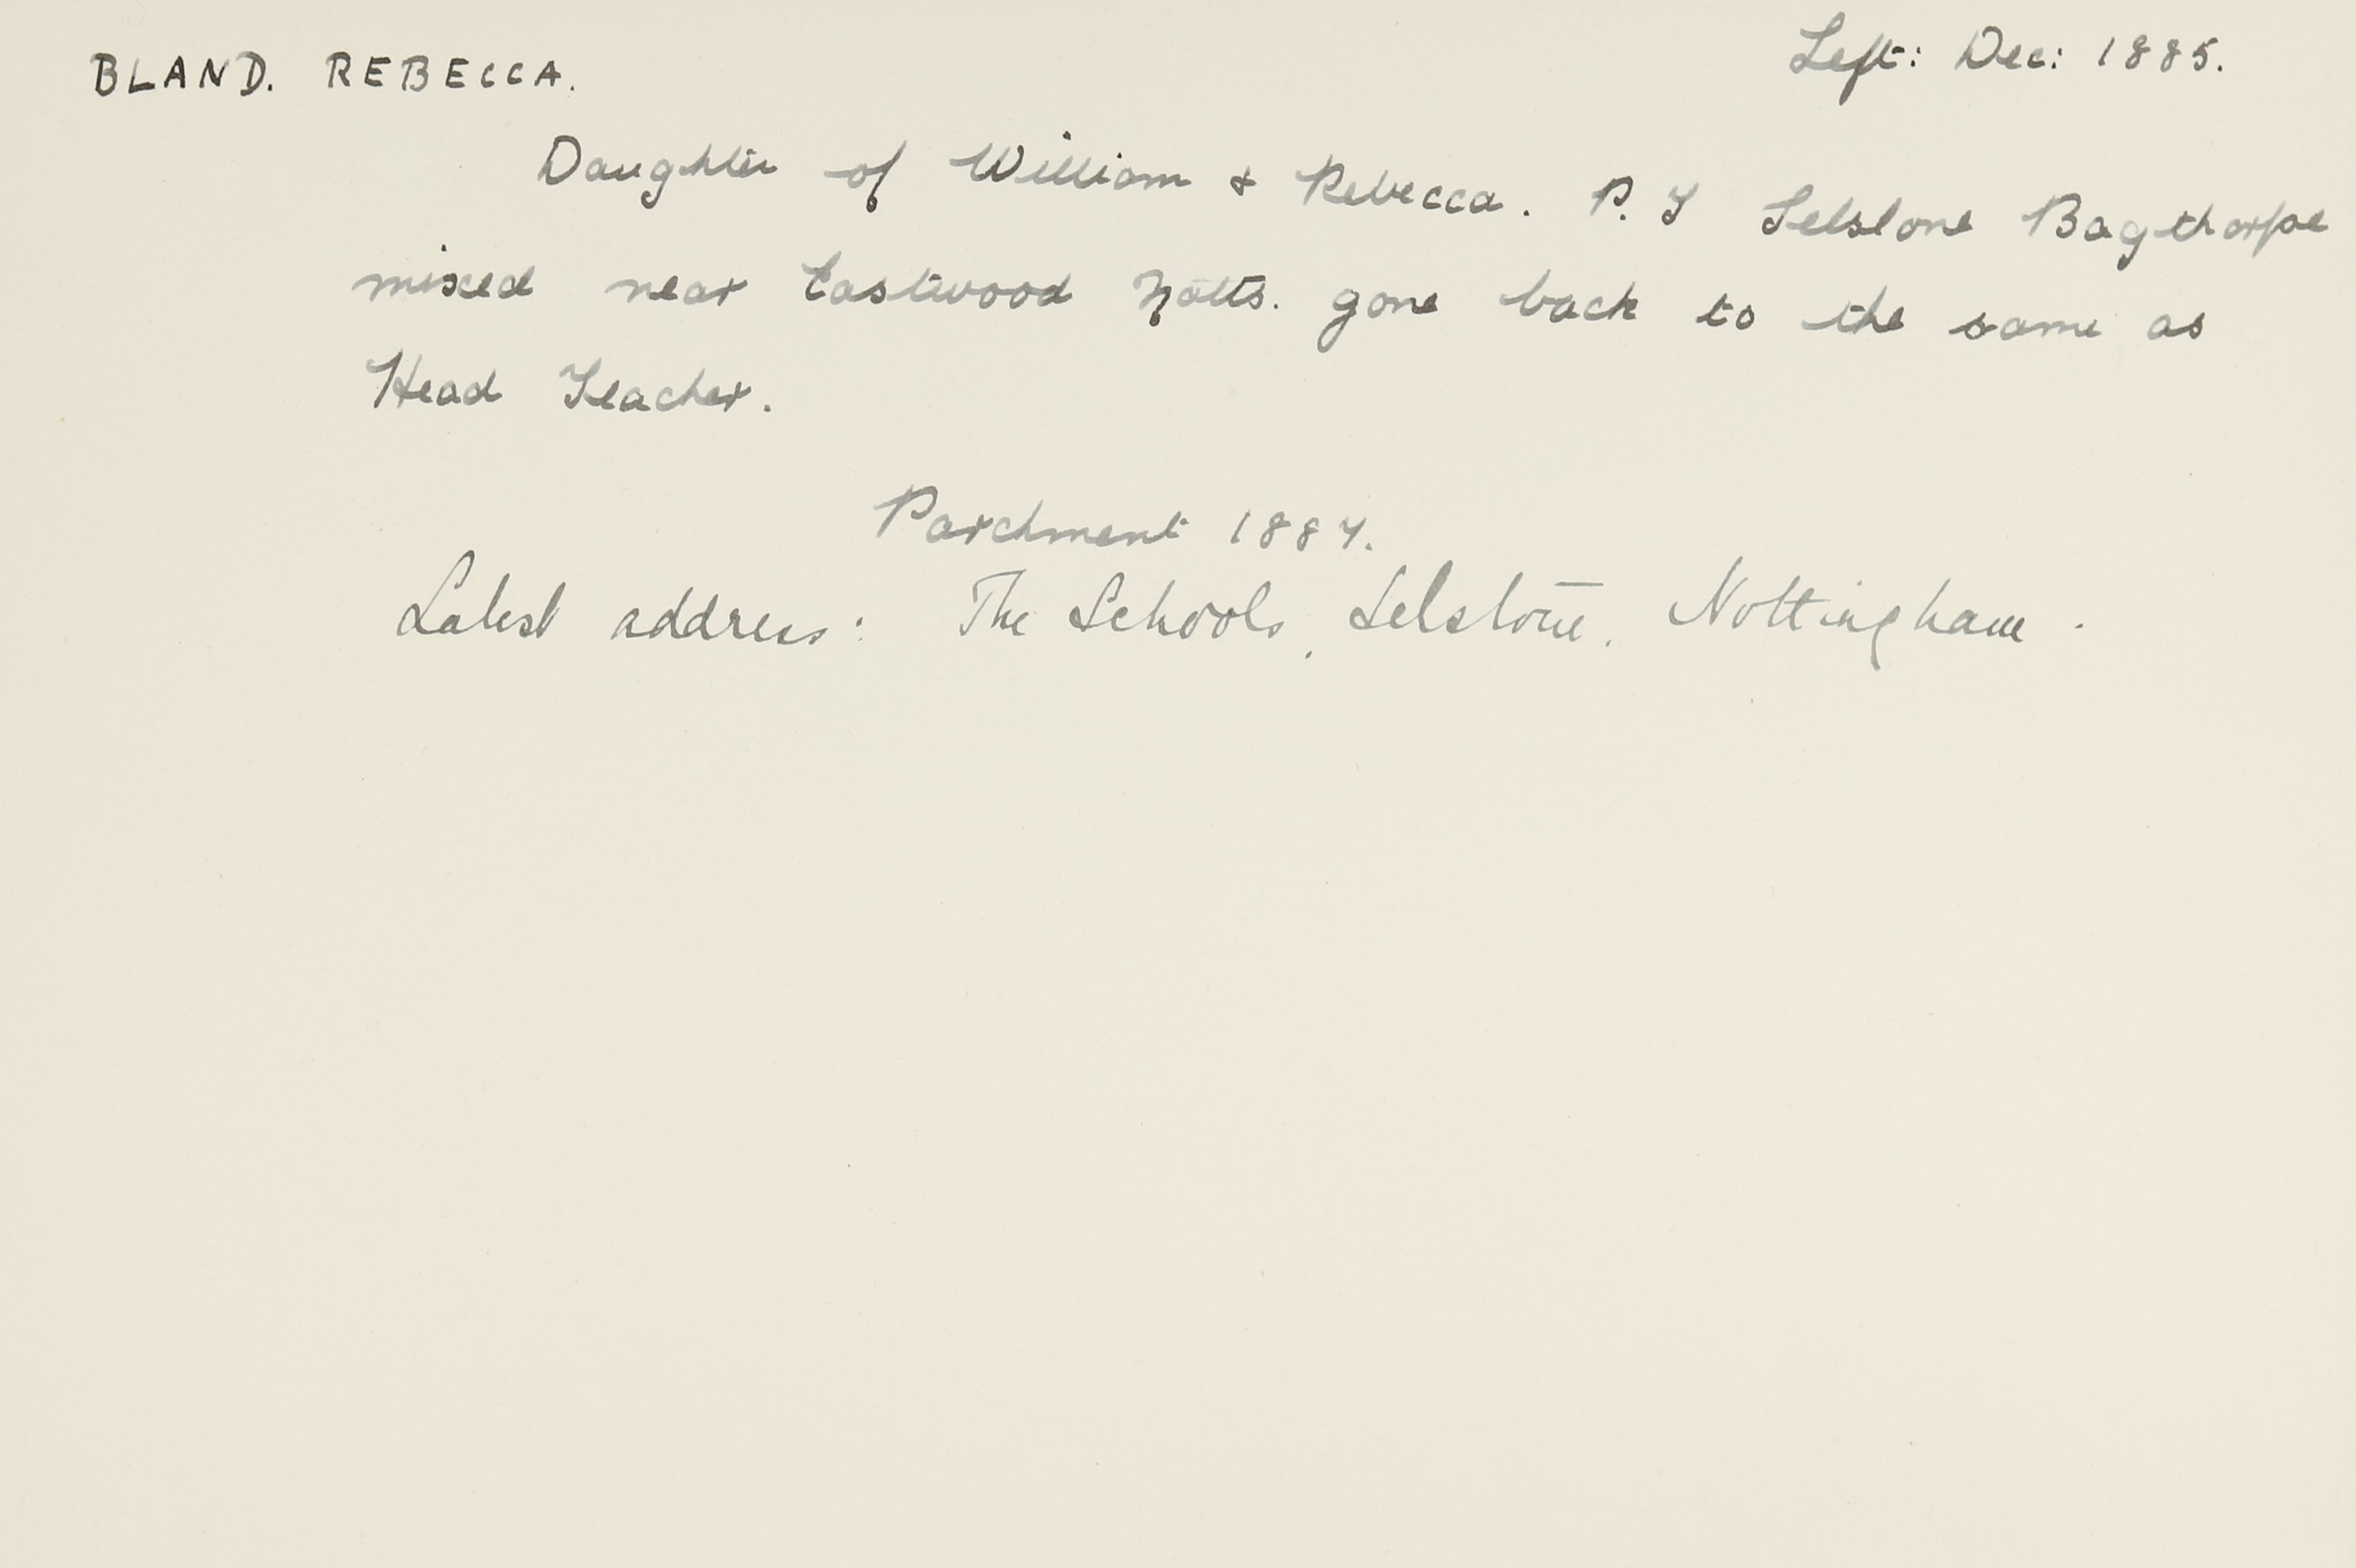 BLAND. REBECCA.
Left: Dec: 1885.
Daughter of William & Rebecca. P. T Selstone Bagthorpe
mixed near Eastwood Notts. gone back to the same as
Head Teacher.
Parchment 1887.
Latest address: The Schools, Selstone, Nottingham.